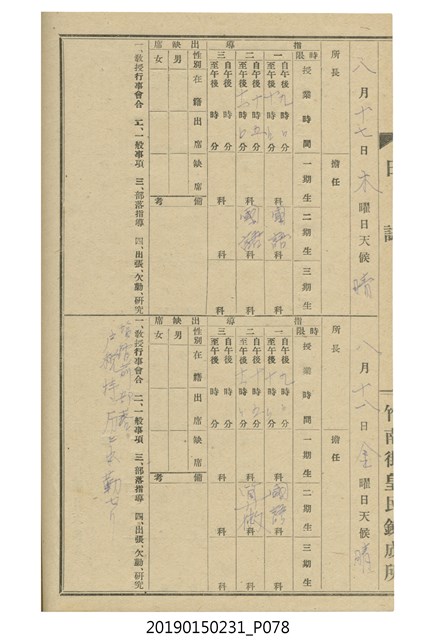 日誌
竹南街皇民鍊成所
八月十七日木曜日天候晴
所長
擔任
指導
時限
授業時間
一期生
二期生
三期生
一
自午後 時 分
至午後 時 分
科 國語
科
科
二
自午後 時 分
至午後 時 分
科 國語
科
科
三
自午後 時 分
至午後 時 分
科
科
科
出缺席
性別
在籍
出席
缺席
備考
男
女
一、教授行事會合 二、一般事項 三、部落指導 四、出張、欠勤、研究
八月十八日金曜日天候晴
所長
擔任
指導
時限
授業時間
一期生
二期生
三期生
一
自午後 時 分
至午後 時 分
科 國語
科
科
二
自午後 時 分
至午後 時 分
科
科
科
三
自午後 時 分
至午後 時 分
科
科
科
出缺席
性別
在籍
出席
缺席
備考
男
女
一、教授行事會合 二、一般事項 三、部落指導 四、出張、欠勤、研究
20190150231_P078